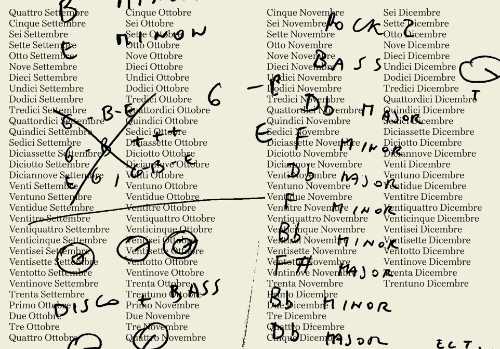 Quattro Settembre
Cinque Settembre
Sei Settembre
Sette Settembre
Otto Settembre
Nove Settembre
Dieci Settembre
Undici Settembre
Dodici Settembre
Tredici Settembre
Quattordici Settembre
Quindici Settembre
Sedici Settembre
Diciasette Settembre
Diciotto Settembre
Diciannove Settembre
Venti Settembre
Ventuno Settembre
Ventidue Settembre
Ventitre Settembre
Ventiquattro Settembre
Venticinque Settembre
Ventisei Settembre
Ventisette Settembre
Ventotto Settembre
Ventinove Settembre
Trenta Settembre
Primo Ottobre
Due Ottobre
Tre Ottobre
Quattro Ottobre
Cinque Ottobre
Sei Ottobre
Sette Ottobre
Otto Ottobre
Nove Ottobre
Dieci Ottobre
Undici Ottobre
Dodici Ottobre
Tredici Ottobre
Quattordici Ottobre
Quindici Ottobre
Sedici Ottobre
Diciassette Ottobre
Diciotto Ottobre
Diciannove Ottobre
Venti Ottobre
Ventuno Ottobre
Ventidue Ottobre
Ventitre Ottobre
Ventiquattro Ottobre
Venticinque Ottobre
Ventisei Ottobre
Ventisette Ottobre
Ventotto Ottobre
Ventinove Ottobre
Trenta Ottobre
Trentuno Ottobre
Primo Novembre
Due Novembre
Tre Novembre
Quattro Novembre
Cinque Novembre
Sei Novembre
Sette Novembre
Otto Novembre
Nove Novembre
Dieci Novembre
Undici Novembre
Dodici Novembre
Tredici Novembre
Quattordici Novembre
Quindici Novembre
Sedici Novembre
Diciassette Novembre
Diciotto Novembre
Diciannove Novembre
Venti Novembre
Ventuno Novembre
Ventidue Novembre
Ventitre Novembre
Ventiquattro Novembre
Venticinque Novembre
Ventisei Novembre
Ventisette Novembre
Ventotto Novembre
Ventinove Novembre
Trenta Novembre
Primo Dicembre
Due Dicembre
Tre Dicembre
Quattro Dicembre
Cinque Dicembre
Sei Dicembre
Sette Dicembre
Otto Dicembre
Nove Dicembre
Dieci Dicembre
Undici Dicembre
Dodici Dicembre
Tredici Dicembre
Quattordici Dicembre
Quindici Dicembre
Sedici Dicembre
Diciassette Dicembre
Diciotto Dicembre
Diciannove Dicembre
Venti Dicembre
Ventuno Dicembre
Ventidue Dicembre
Ventitre Dicembre
Ventiquattro Dicembre
Venticinque Dicembre
Ventisei Dicembre
Ventisette Dicembre
Ventotto Dicembre
Ventinove Dicembre
Trenta Dicembre
Trentuno Dicembre
B
E MINOR
B-E
6
DISCO + BASS
ROCK 2
BASS
Db MAJOR
F MINOR
Db MAJOR
F MINOR
Bb MINOR
F# MAJOR
Bb MINOR
Db MAJOR
ECT.